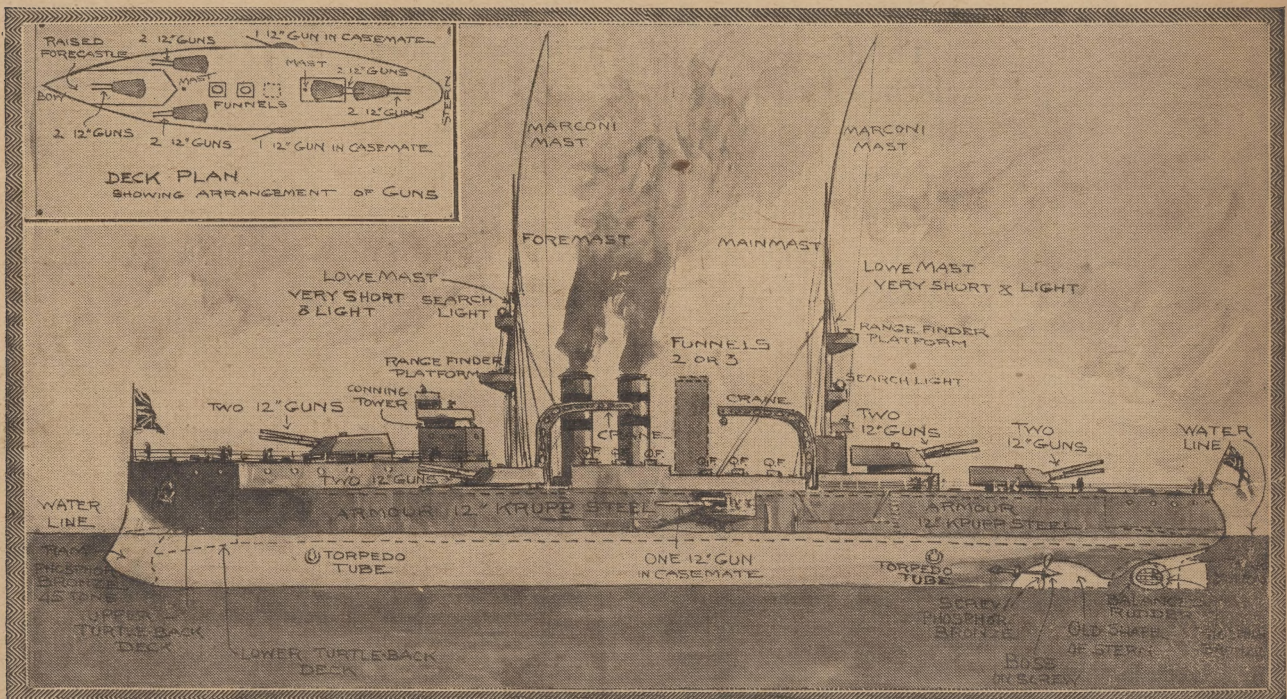 RAISED
FORECASTLE
2 12" GUNS
1 12" GUN IN CASEMATE
BOW
MAST
FUNNELS
MAST
2 12" GUNS
STERN
2 12" GUNS
2 12" GUNS
2 12" GUNS
1 12" GUN IN CASEMATE
DECK PLAN
SHOWING ARRANGEMENT OF GUNS
MARCONI
MAST
MARCONI
MAST
FOREMAST
MAINMAST
LOWE MAST
VERY SHORT
& LIGHT
SEARCH
LIGHT
LOWE MAST
VERY SHORT & LIGHT
RANGE FINDER
PLATFORM
FUNNELS
2 OR 3
RANGE FINDER
PLATFORM
CONNING
TOWER
SEARCH LIGHT
TWO 12" GUNS
CRANE
CRANE
TWO
12" GUNS
TWO
12" GUNS
WATER
LINE
Q.F.
Q.F.
Q.F.
Q.F.
Q.F.
Q.F.
TWO 12" GUNS
WATER
LINE
ARMOUR 12" KRUPP STEEL
ARMOUR
12" KRUPP STEEL
RAM
PHOSPHOR
BRONZE
45 TONS
TORPEDO
TUBE
ONE 12" GUN
IN CASEMATE
TORPEDO
TUBE
UPPER
TURTLE-BACK
DECK
LOWER TURTLE-BACK
DECK
SCREW
PHOSPHOR
BRONZE
BOSS
OF SCREW
OLD SHAPE
OF STERN
BALANCE
RUDDER